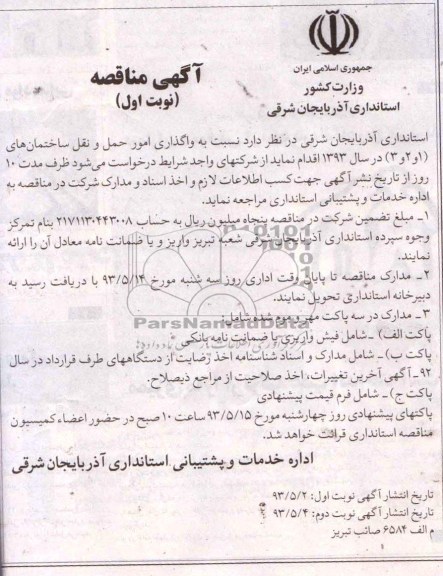 جمهوری اسلامی ایران
وزارت کشور
استانداری آذربایجان شرقی
آگهی مناقصه
(نوبت اول)
استانداری آذربایجان شرقی در نظر دارد نسبت به واگذاری امور حمل و نقل ساختمان‌های
(۱و۲و۳) در سال ۱۳۹۳ اقدام نماید از شرکتهای واجد شرایط درخواست می‌شود ظرف مدت ۱۰
روز از تاریخ نشر آگهی جهت کسب اطلاعات لازم و اخذ اسناد و مدارک شرکت در مناقصه به
اداره خدمات و پشتیبانی استانداری مراجعه نماید.
۱- مبلغ تضمین شرکت در مناقصه پنجاه میلیون ریال به حساب ۲۱۷۱۱۳۰۴۴۳۰۰۸ بنام تمرکز
وجوه سپرده استانداری آذربایجان شرقی شعبه تبریز واریز و یا ضمانت نامه معادل آن را ارائه
نمایند.
۲- مدارک مناقصه تا پایان وقت اداری روز سه شنبه مورخ ۹۳/۵/۱۴ با دریافت رسید به
دبیرخانه استانداری تحویل نمایند.
۳- مدارک در سه پاکت مهر و موم شده شامل:
پاکت الف)- شامل فیش واریزی یا ضمانت نامه بانکی
پاکت ب)- شامل مدارک و اسناد شناسنامه اخذ رضایت از دستگاههای طرف قرارداد در سال
۹۲- آگهی آخرین تغییرات، اخذ صلاحیت از مراجع ذیصلاح.
پاکت ج)- شامل فرم قیمت پیشنهادی
پاکتهای پیشنهادی روز چهارشنبه مورخ ۹۳/۵/۱۵ ساعت ۱۰ صبح در حضور اعضاء کمیسیون
مناقصه استانداری قرائت خواهد شد.
اداره خدمات و پشتیبانی استانداری آذربایجان شرقی
تاریخ انتشار آگهی نوبت اول: ۹۳/۵/۲
تاریخ انتشار آگهی نوبت دوم: ۹۳/۵/۴
م الف ۶۵۸۴ صائب تبریز
ParsNamadData